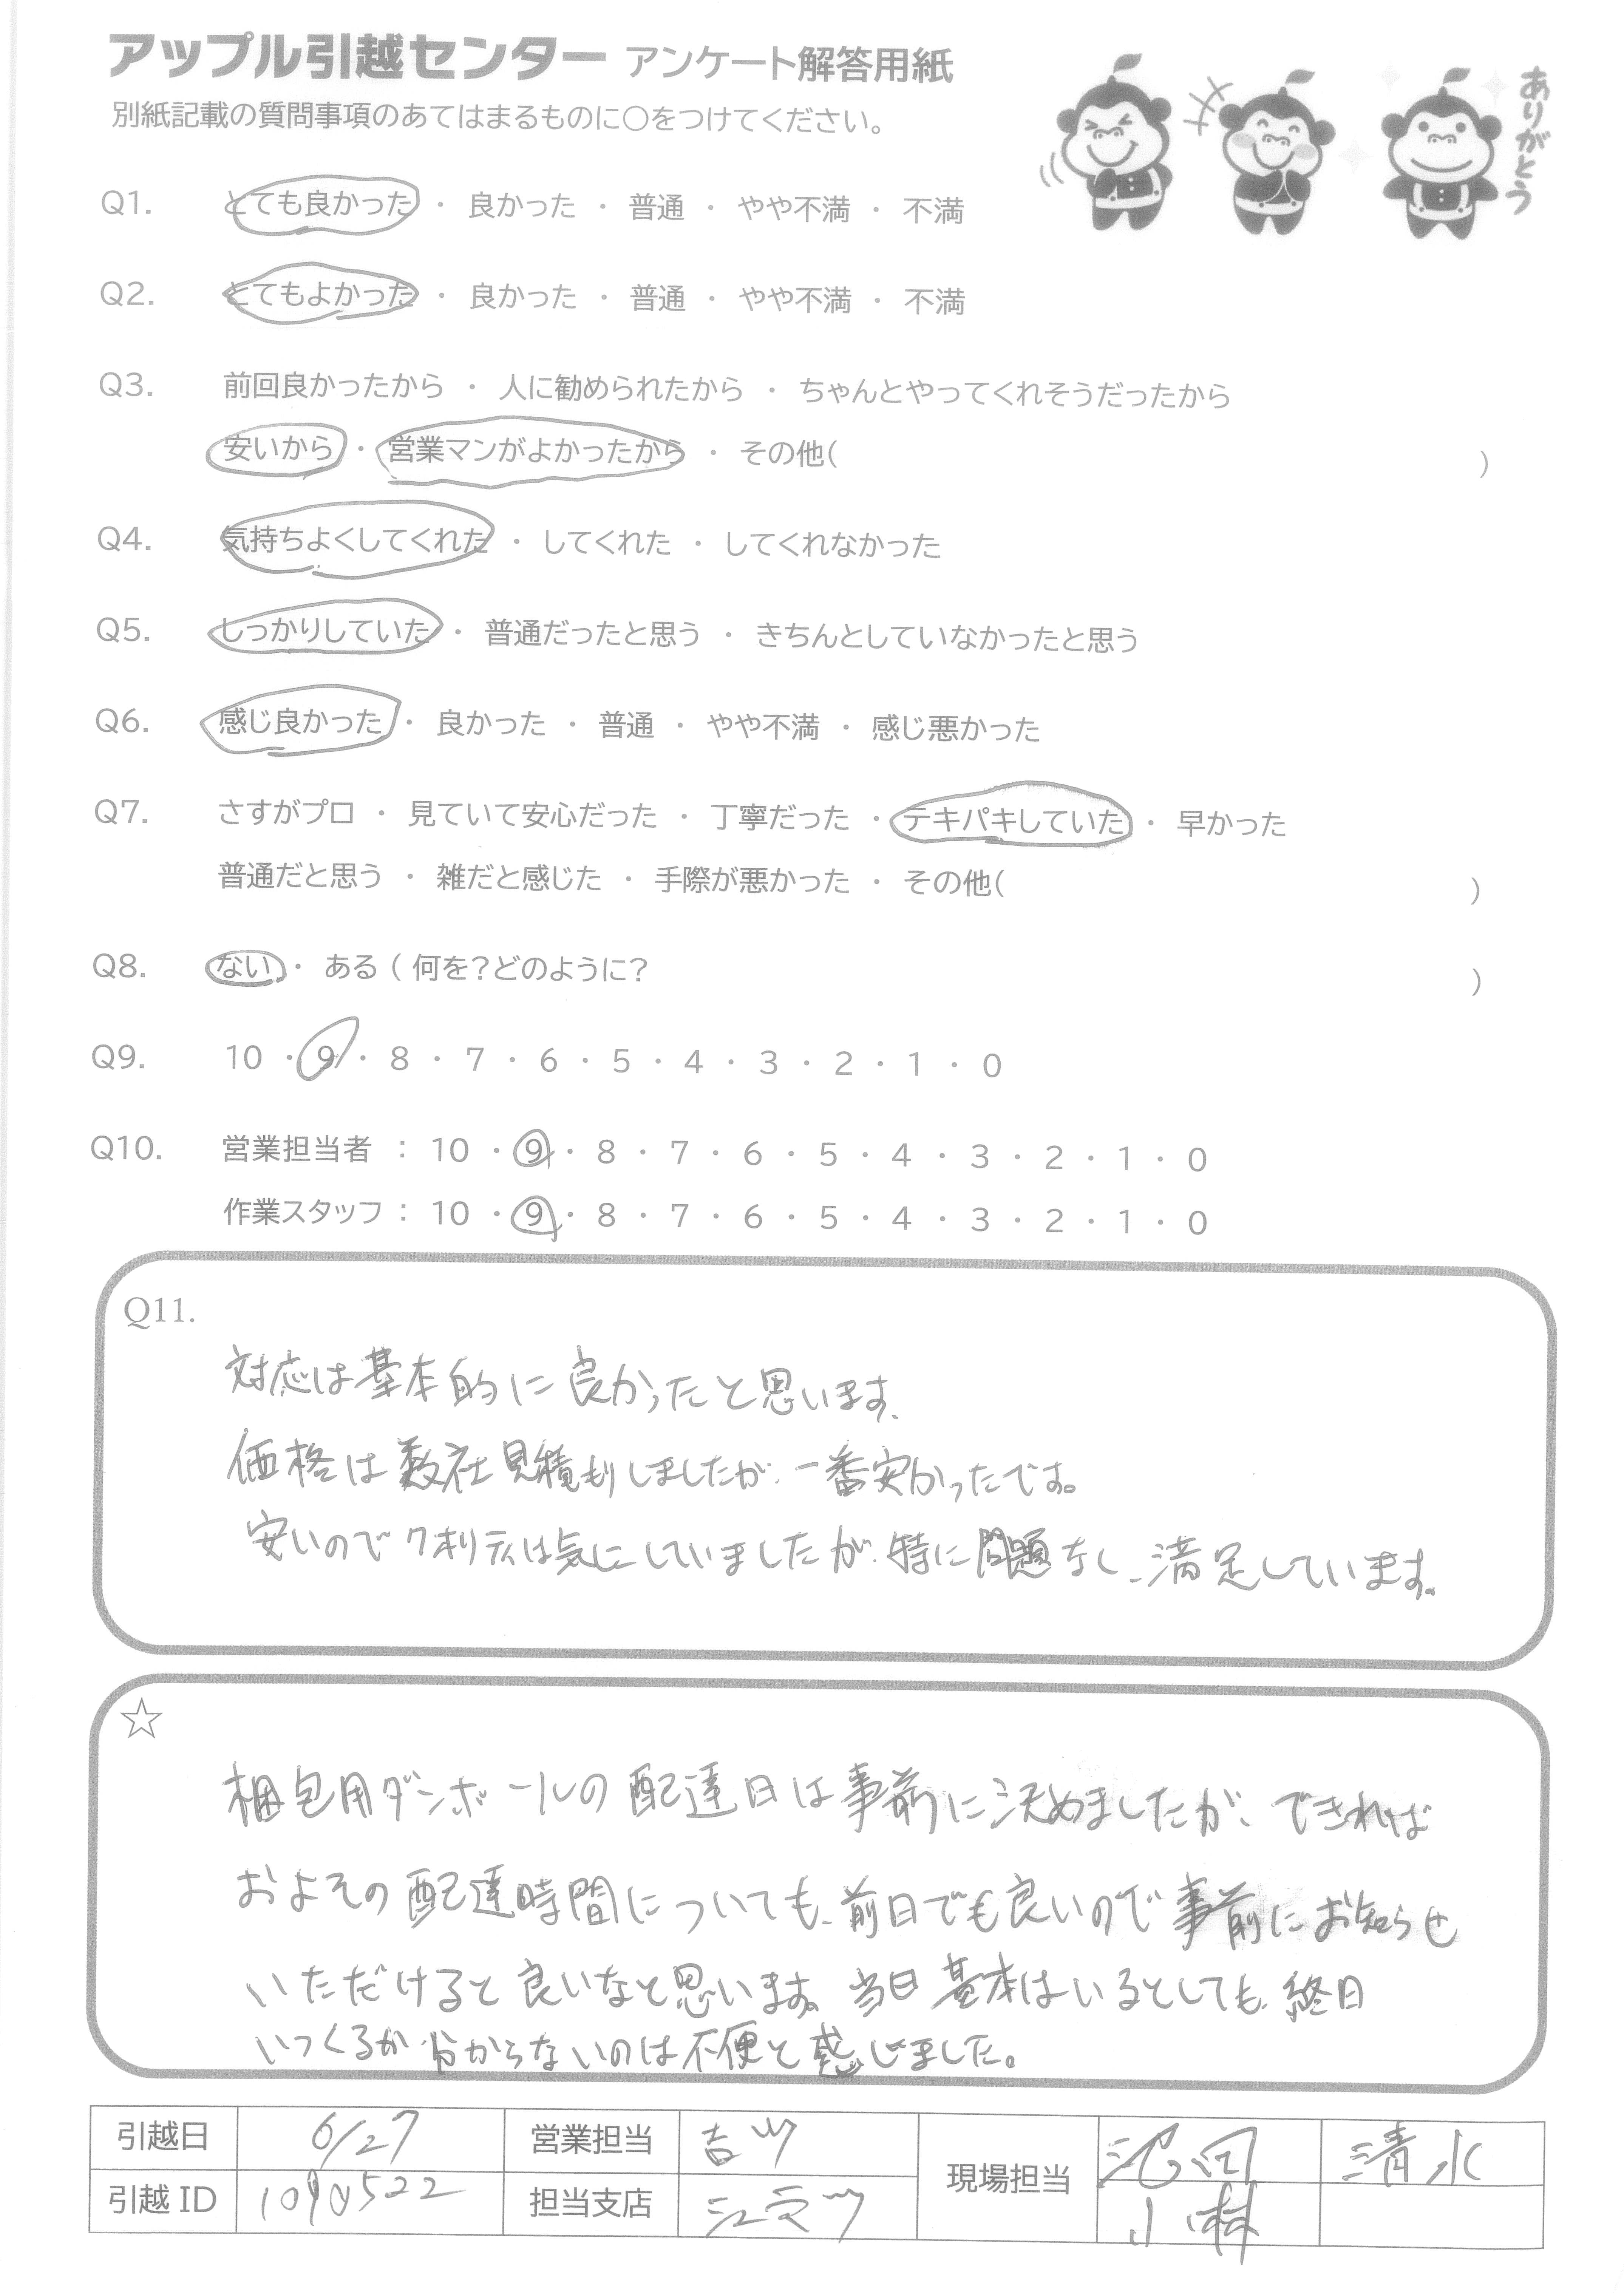 アップル引越センター アンケート解答用紙
別紙記載の質問事項のあてはまるものに○をつけてください。
ありがとう
Q1. とても良かった ・ 良かった ・ 普通 ・ やや不満 ・ 不満
Q2. とてもよかった ・ 良かった ・ 普通 ・ やや不満 ・ 不満
Q3. 前回良かったから ・ 人に勧められたから ・ ちゃんとやってくれそうだったから
安いから ・ 営業マンがよかったから ・ その他( )
Q4. 気持ちよくしてくれた ・ してくれた ・ してくれなかった
Q5. しっかりしていた ・ 普通だったと思う ・ きちんとしていなかったと思う
Q6. 感じ良かった ・ 良かった ・ 普通 ・ やや不満 ・ 感じ悪かった
Q7. さすがプロ ・ 見ていて安心だった ・ 丁寧だった ・ テキパキしていた ・ 早かった
普通だと思う ・ 雑だと感じた ・ 手際が悪かった ・ その他( )
Q8. ない ・ ある ( 何を?どのように? )
Q9. 10 ・ 9 ・ 8 ・ 7 ・ 6 ・ 5 ・ 4 ・ 3 ・ 2 ・ 1 ・ 0
Q10. 営業担当者 : 10 ・ 9 ・ 8 ・ 7 ・ 6 ・ 5 ・ 4 ・ 3 ・ 2 ・ 1 ・ 0
作業スタッフ : 10 ・ 9 ・ 8 ・ 7 ・ 6 ・ 5 ・ 4 ・ 3 ・ 2 ・ 1 ・ 0
Q11.
対応は基本的に良かったと思います。
価格は数社見積もりしましたが、一番安かったです。
安いのでクオリティは気にしていましたが、特に問題なし、満足しています。
☆
梱包用ダンボールの配達日は事前に決めましたが、できれば
おおよその配達時間についても、前日でも良いので事前にお知らせ
いただけると良いなと思います。当日基本はいるとしても、終日
いつくるか分からないのは不便と感じました。
引越日 6/27 営業担当 吉ツ 現場担当 池田 清水
引越ID 1090522 担当支店 江戸ツ 小林